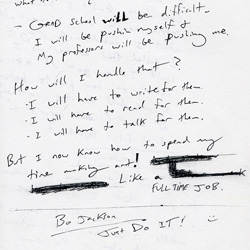 - GRAD school will be difficult.
I will be pushing myself &
My professors will be pushing me.
How will I handle that?
- I will have to write for them.
- I will have to read for them.
- I will have to talk for them.
But I now know how to spend my
time making art!
Like a
FULL TIME JOB.
Bo Jackson
Just Do IT!